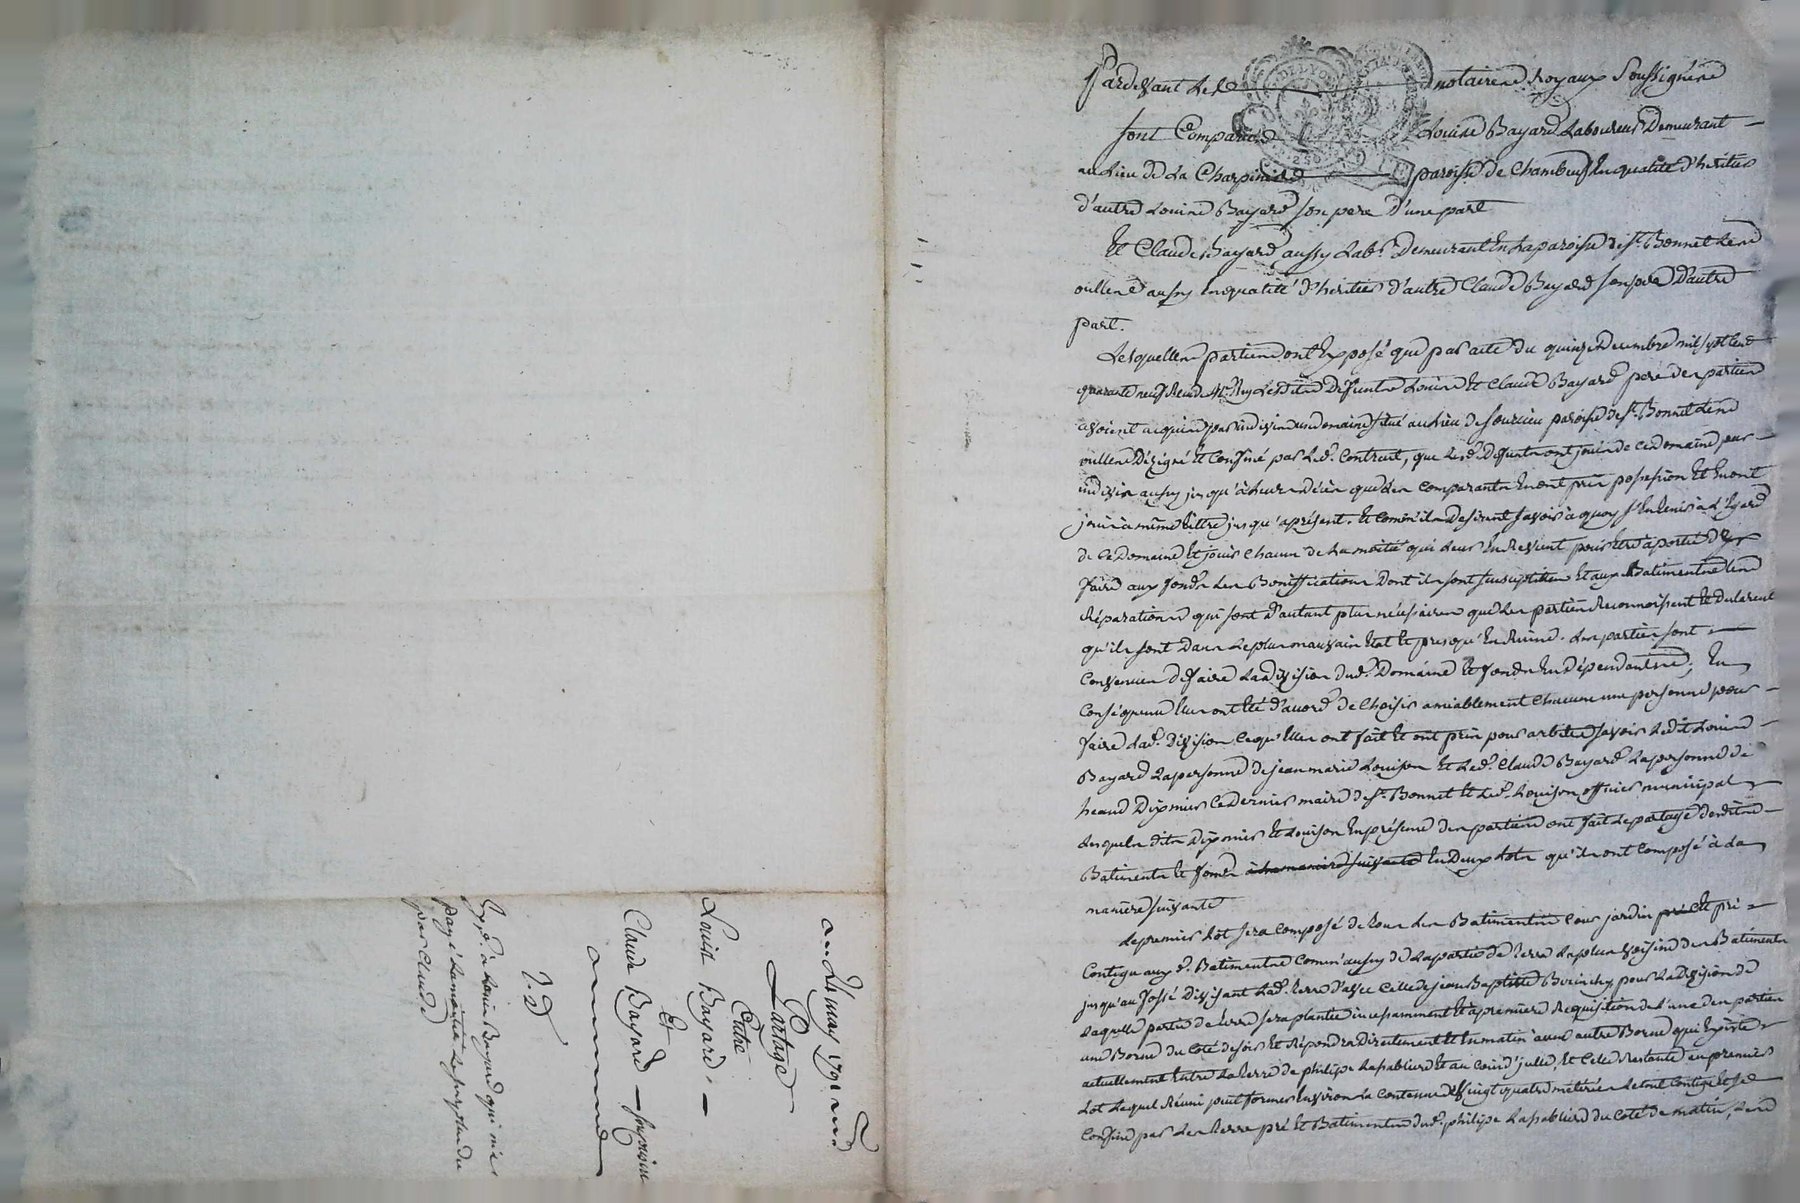 Pardevant Les notaires Royaux Soussignés
sont Comparus Louis Bayard Laboureur Demeurant
au Lieu de La Charpinière paroisse de Chambeuf En qualité d'héritier
d'autre Louis Bayard son pere d'une part
Et Claude Bayard aussy Lab.r Demeurant En La paroisse de St. Bonnet Les
oulles aussy En qualité d'héritier d'autre Claude Bayard son père D'autre
part.
Lesquelles parties ont Exposé que par acte du quinze Decembre mil sept cent
quarante neuf Reçu Me Lesdits Defunts Louis Et Claude Bayard pere des parties
avoient acquis par indivis un domaine situé au Lieu de paroisse de St. Bonnet Les
oulles Désigné Et Confiné par Led. Contract, que Lesd. Defunts ont joui de ce domaine par
indivis aussy jusqu'à Leurs décès que Les Comparants En ont pris possession Et En ont
joui à même tittre jusqu'aprésent. Et Comm'ils Desirent savoir à quoy s'En tenir à L'Egard
de Ce Domaine Et jouir chacun de La moitié qui Leur En Revient pour Etre à portée D'y
faire aux fonds Les Boniffications Dont ils sont susceptibles Et aux Batiments Les
Réparations qui sont D'autant plus nécessaires que Les parties Reconnoissent Et declarent
qu'ils sont Dans Le plus mauvais Etat Et presqu'En Ruine. Les parties sont
Convenues de faire La division dud. Domaine Et fonds En dépendants; En
Conséquence Elles ont Eté d'accord de Choisir amiablement Chacune une personne pour
faire Lad. Division Ce qu'Elles ont fait Et ont pris pour arbitres savoir Ledit Louis
Bayard La personne de jean marie Louison Et Led. Claude Bayard La personne de
Dixmier Ce Dernier maire de St. Bonnet Et Led. Louison officier municipal
Lesquels dits Dixmier Et Louison En présence des parties ont fait Le partage desdits
Batiments Et fonds à la manière suivante En Deux Lots qu'ils ont Composé à La
manière suivante
Le premier Lot sera Composé de tous Les Batiments Cour jardin pré Et pré
Contigu aux d. Batiments Comm'aussy de La partie de terre La plus Voisine des Batiments
jusqu'au fossé Divisant Lad. terre D'avec Celle de jean Baptiste pour La Division de
Laquelle partie de terre sera plantée incessamment Et à première Requisition de L'une des parties
une Borne du Coté de soir Et Répondra directement Et En matin à une autre Borne qui Existe
actuellement Entre La terre de philipe Lasablière Et au Et Celle Restante au premier
Lot Lequel Réuni peut former Environ La Contenue de Vingt quatre métérées Le tout Contigu Et se
Confine par Les terre pré Et Batiments dud. philipe Lasablière du Coté de matin, Les
1791
Partage
Entre
Louis Bayard.
Et
Claude Bayard
Exp.é à Louis Bayard qui m'a
payé La moitié Le surplus du
par Claude